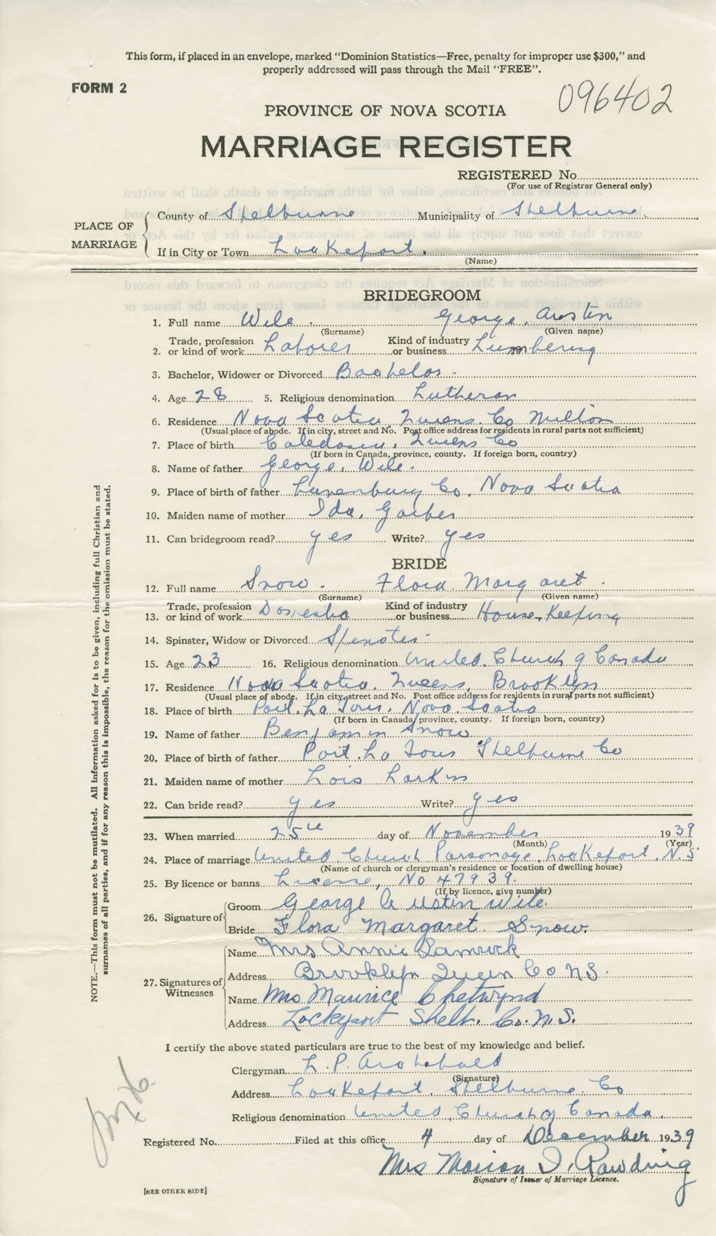 This form, if placed in an envelope, marked "Dominion Statistics—Free, penalty for improper use $300," and
properly addressed will pass through the Mail "FREE".
FORM 2
096402
PROVINCE OF NOVA SCOTIA
MARRIAGE REGISTER
REGISTERED No.
(For use of Registrar General only)
PLACE OF MARRIAGE
County of Shelburne Municipality of Shelburne
If in City or Town Lockeport.
(Name)
BRIDEGROOM
1. Full name Wile. George, Austin
(Surname) (Given name)
2. Trade, profession or kind of work Laborer Kind of industry or business Lumbering
3. Bachelor, Widower or Divorced Bachelor
4. Age 28 5. Religious denomination Lutheran
6. Residence Nova Scotia, Queens Co Milton
(Usual place of abode. If in city, street and No. Post office address for residents in rural parts not sufficient)
7. Place of birth Caledonia, Queens Co
(If born in Canada, province, county. If foreign born, country)
8. Name of father George, Wile.
9. Place of birth of father Lunenburg Co. Nova Scotia
10. Maiden name of mother Ida,
11. Can bridegroom read? yes Write? yes
BRIDE
12. Full name Snow. Flora Margaret.
(Surname) (Given name)
13. Trade, profession or kind of work Domestic Kind of industry or business House-Keeping
14. Spinster, Widow or Divorced Spinster
15. Age 23 16. Religious denomination United Church of Canada
17. Residence Nova Scotia, Queens, Brooklyn
(Usual place of abode. If in city, street and No. Post office address for residents in rural parts not sufficient)
18. Place of birth Port La Tour, Nova Scotia
(If born in Canada, province, county. If foreign born, country)
19. Name of father Benjamin Snow
20. Place of birth of father Port La Tour Shelburne Co
21. Maiden name of mother Lois Larkin
22. Can bride read? yes Write? yes
23. When married 25th day of November 1939
(Month) (Year)
24. Place of marriage United Church Parsonage, Lockeport, N.S.
(Name of church or clergyman's residence or location of dwelling house)
25. By licence or banns License, No 47939.
(If by licence, give number)
26. Signature of
Groom George Austin Wile.
Bride Flora Margaret Snow.
27. Signatures of Witnesses
Name Mrs Annie
Address Brooklyn Queen Co N.S.
Name Mrs Maurice Chetwynd
Address Lockeport Shelb. Co. N.S.
I certify the above stated particulars are true to the best of my knowledge and belief.
Clergyman L. P. Archibald
(Signature)
Address Lockeport, Shelburne Co
Religious denomination United Church of Canada.
Registered No. Filed at this office 4 day of December 1939
Mrs Marion
Signature of Issuer of Marriage Licence.
[SEE OTHER SIDE]
NOTE.—This form must not be mutilated. All Information asked for is to be given, including full Christian and
surnames of all parties, and if for any reason this is impossible, the reason for the omission must be stated.